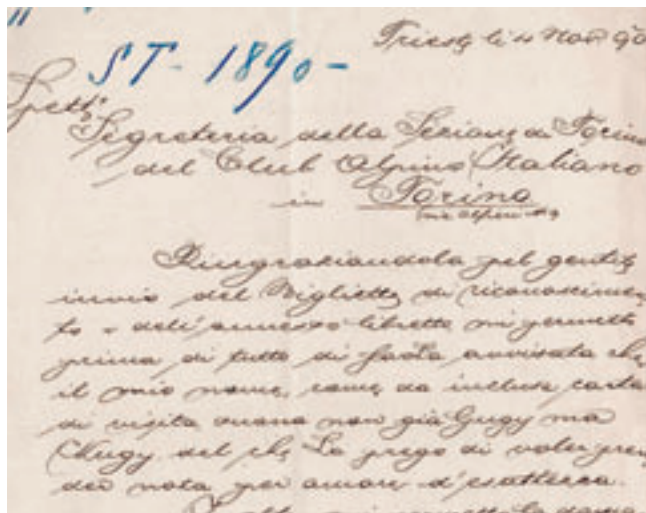 ST - 1890 -
Trieste li 4 Nov 90
Spett.
Segreteria della Sezione di Torino
del Club Alpino Italiano
in Torino
via Alfieri
Ringraziandola pel gentile
invio del Biglietto di riconoscimen
to e dell'annesso libretto mi permetto
prima di tutto di farLa avvisata che
il mio nome, come da inclusa carta
di visita suona non già Gugy ma
Chugy del che La prego di voler pren
der nota per amore d'esattezza.